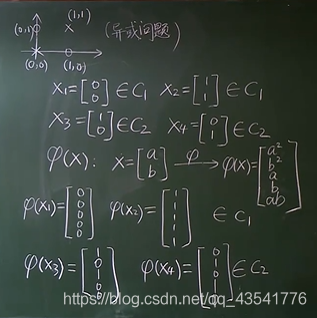 (1,1)
(0,1) × (异或问题)
(0,0) (1,0)
X₁=[0 0]∈C₁ X₂=[1 1]∈C₁
X₃=[1 0]∈C₂ X₄=[0 1]∈C₂
φ(X): X=[a b] —φ→ φ(X)=[a² b² a b ab]
φ(X₁)=[0 0 0 0 0] φ(X₂)=[1 1 1 1 1] ∈C₁
φ(X₃)=[1 0 1 0 0] φ(X₄)=[0 1 0 1 0]∈C₂
https://blog.csdn.net/qq_43541776